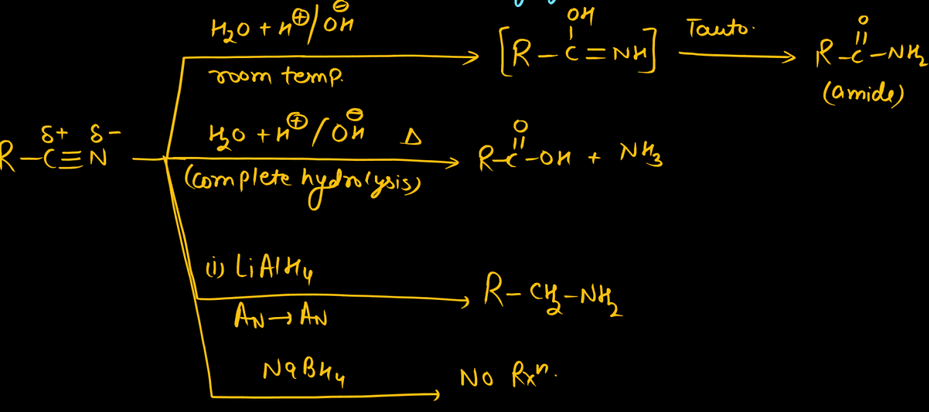 H₂O + H⊕/OH⊖
room temp.
[R–C(OH)=NH] Tauto. R–C(=O)–NH₂
(amide)
δ+ δ−
R–C≡N
H₂O + H⊕/OH⊖ Δ
(complete hydrolysis)
R–C(=O)–OH + NH₃
(i) LiAlH₄
AN → AN
R–CH₂–NH₂
NaBH₄
No Rxⁿ.